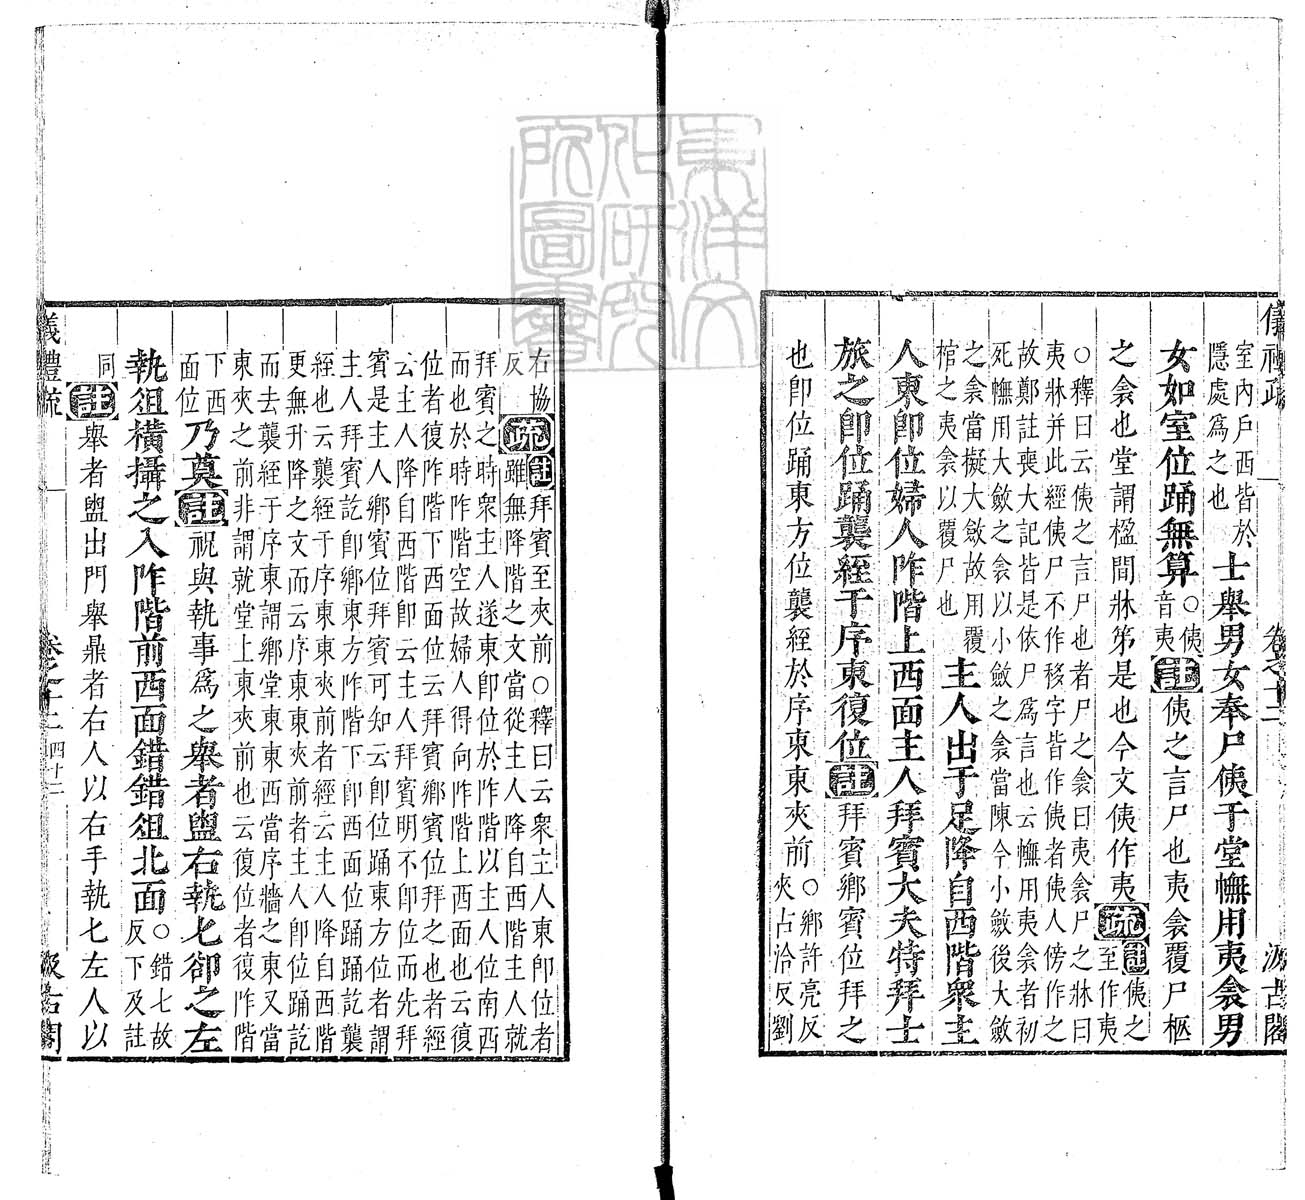 室內戶西皆於
隱處爲之也
士舉男女奉尸侇于堂幠用夷衾男
女如室位踊無算
○侇
音夷
註侇之言尸也夷衾覆尸柩
之衾也堂謂楹間牀笫是也今文侇作夷
疏註侇之
至作夷
○釋曰云侇之言尸也者尸之衾曰夷衾尸之牀曰
夷牀并此經侇尸不作移字皆作侇者侇人傍作之
故鄭註喪大記皆是依尸爲言也云幠用夷衾者初
死幠用大斂之衾以小斂之衾當陳今小斂後大斂
之衾當擬大斂故用覆
棺之夷衾以覆尸也
主人出于足降自西階衆主
人東卽位婦人阼階上西面主人拜賓大夫特拜士
旅之卽位踊襲絰于序東復位註拜賓鄉賓位拜之
也卽位踊東方位襲絰於序東東夾前
○鄉許亮反
夾占洽反劉
右協
反
疏
註拜賓至夾前○釋曰云衆主人東卽位者
雖無降階之文當從主人降自西階主人就
拜賓之時衆主人遂東卽位於阼階以主人位南西
而也於時阼階空故婦人得向阼階上西面也云復
位者復阼階下西面位云拜賓鄉賓位拜之也者經
云主人降自西階卽云主人拜賓明不卽位而先拜
賓是主人鄉賓位拜賓可知云卽位踊東方位者謂
主人拜賓訖卽鄉東方阼階下卽西面位踊踊訖襲
絰也云襲絰于序東東夾前者經云主人降自西階
更無升降之文而云序東東夾前者主人卽位踊訖
而去襲絰于序東謂鄉堂東東西當序牆之東又當
東夾之前非謂就堂上東夾前也云復位者復阼階
下西
面位
乃奠註祝與執事爲之舉者盥右執匕卻之左
執俎橫攝之入阼階前西面錯錯俎北面
○錯七故
反下及註
同
註舉者盥出門舉鼎者右人以右手執匕左人以
儀禮疏
卷之十二
汲古閣
儀禮疏
卷之十二
四十二
汲古閣
東洋文
化硏究
所圖書